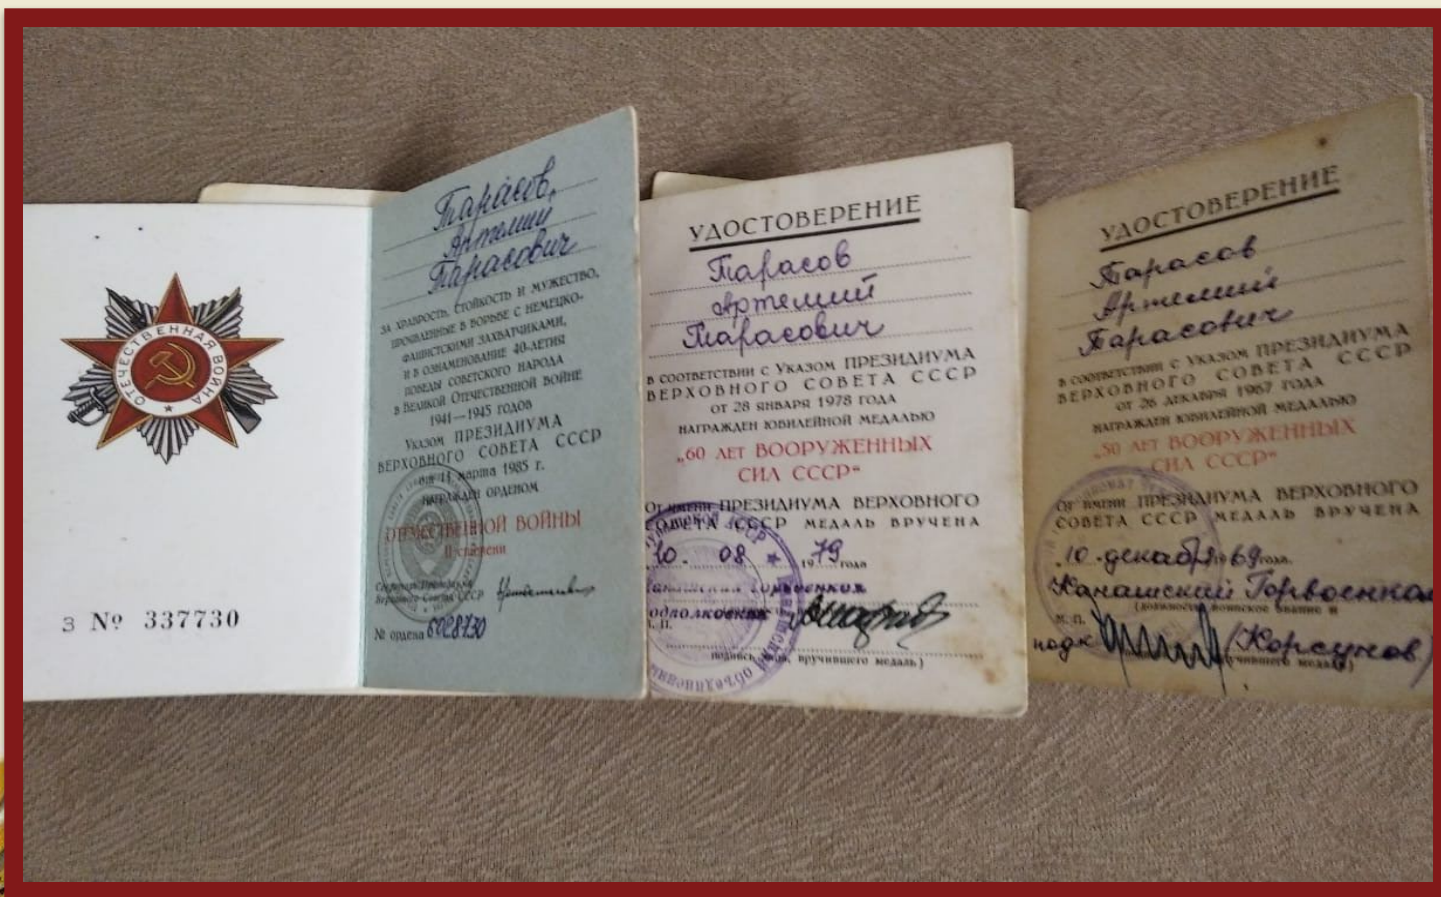 ОТЕЧЕСТВЕННАЯ ВОЙНА
З № 337730
Тарасов
Артемий
Тарасович
ЗА ХРАБРОСТЬ, СТОЙКОСТЬ И МУЖЕСТВО,
ПРОЯВЛЕННЫЕ В БОРЬБЕ С НЕМЕЦКО-
ФАШИСТСКИМИ ЗАХВАТЧИКАМИ,
И В ОЗНАМЕНОВАНИЕ 40-ЛЕТИЯ
ПОБЕДЫ СОВЕТСКОГО НАРОДА
В ВЕЛИКОЙ ОТЕЧЕСТВЕННОЙ ВОЙНЕ
1941—1945 ГОДОВ
УКАЗОМ ПРЕЗИДИУМА
ВЕРХОВНОГО СОВЕТА СССР
от 11 марта 1985 г.
НАГРАЖДЕН ОРДЕНОМ
ОТЕЧЕСТВЕННОЙ ВОЙНЫ
II степени
Секретарь Президиума
Верховного Совета СССР
№ ордена
УДОСТОВЕРЕНИЕ
Тарасов
Артемий
Тарасович
В СООТВЕТСТВИИ С УКАЗОМ ПРЕЗИДИУМА
ВЕРХОВНОГО СОВЕТА СССР
ОТ 28 ЯНВАРЯ 1978 ГОДА
НАГРАЖДЕН ЮБИЛЕЙНОЙ МЕДАЛЬЮ
„60 ЛЕТ ВООРУЖЕННЫХ
СИЛ СССР“
ОТ ИМЕНИ ПРЕЗИДИУМА ВЕРХОВНОГО
СОВЕТА СССР МЕДАЛЬ ВРУЧЕНА
10. 08. 1979 года
М. П.
вручившего медаль)
УДОСТОВЕРЕНИЕ
Тарасов
Артемий
Тарасович
В СООТВЕТСТВИИ С УКАЗОМ ПРЕЗИДИУМА
ВЕРХОВНОГО СОВЕТА СССР
ОТ 26 ДЕКАБРЯ 1967 ГОДА
НАГРАЖДЕН ЮБИЛЕЙНОЙ МЕДАЛЬЮ
„50 ЛЕТ ВООРУЖЕННЫХ
СИЛ СССР“
ОТ ИМЕНИ ПРЕЗИДИУМА ВЕРХОВНОГО
СОВЕТА СССР МЕДАЛЬ ВРУЧЕНА
„10 декабря 1969 года.
Канашский Горвоенком
(должность, воинское звание и
М. П.
(Корсунов)